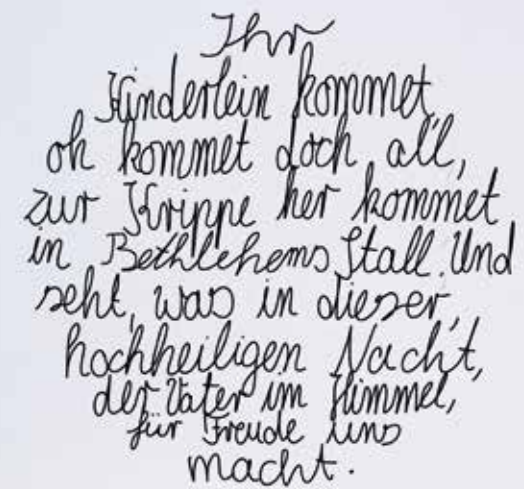 Ihr
Kinderlein kommet,
oh kommet doch all,
zur Krippe her kommet
in Bethlehems Stall. Und
seht, was in dieser,
hochheiligen Nacht,
der Vater im Himmel,
für Freude uns
macht.